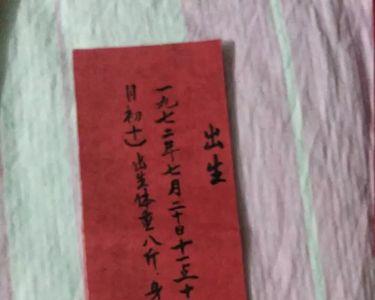 出生
一九七二年七月二十日十一点十
月初十）出生体重八斤.身